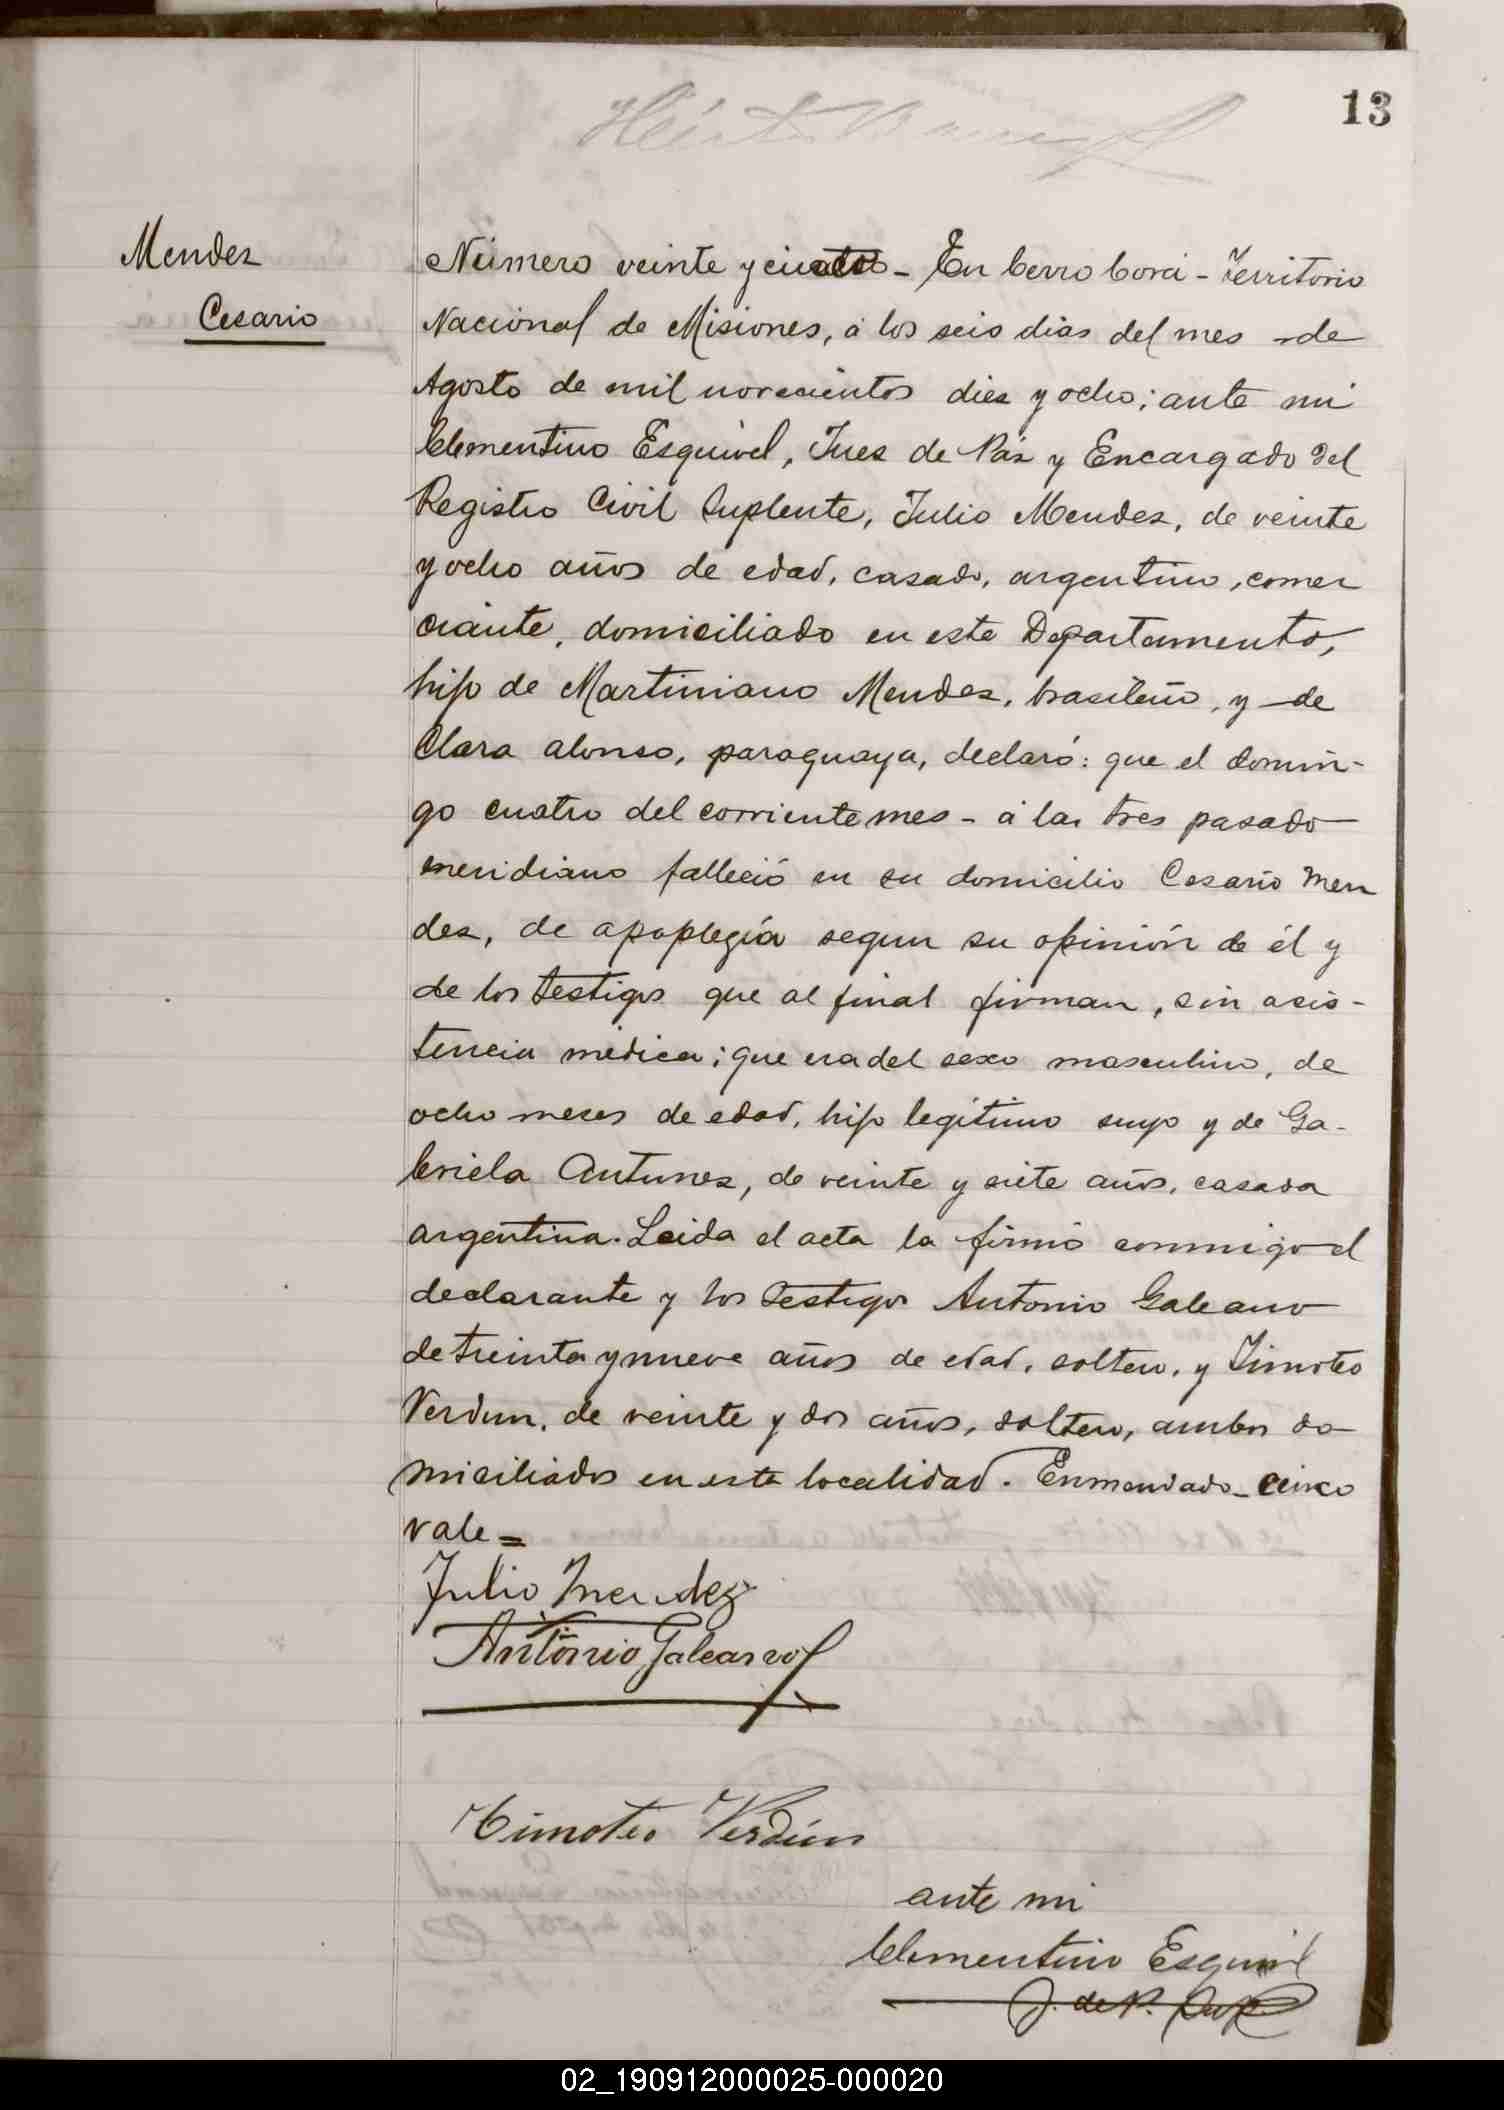 13
Mendez
Cesario
Número veinte y cinco - En Cerro Corá - Territorio
Nacional de Misiones, á los seis dias del mes de
Agosto de mil novecientos diez y ocho; ante mi
Clementino Esquivel, Juez de Páz y Encargado del
Registro Civil Suplente, Julio Mendez, de veinte
y ocho años de edad, casado, argentino, comer
ciante, domiciliado en este Departamento,
hijo de Martiniano Mendez, brasileño, y de
Clara alonso, paraguaya, declaró: que el domin-
go cuatro del corriente mes - á las tres pasado
meridiano falleció en su domicilio Cesario Men
dez, de apoplegía segun su opinión de él y
de los testigos que al final firman, sin asis-
tencia médica; que era del sexo masculino, de
ocho meses de edad, hijo legítimo suyo y de Ga-
briela Antunez, de veinte y siete años, casada
argentina. Leida el acta la firmó conmigo el
declarante y los testigos Antonio Galeano
de treinta y nueve años de edad, soltero, y Timoteo
Verdun, de veinte y dos años, soltero, ambos do
miciliados en esta localidad. Enmendado - cinco
vale =
Julio Mendez
Antonio Galeano
Timoteo Verdún
ante mi
Clementino Esquivel
J. de P. Sup.
02_190912000025-000020